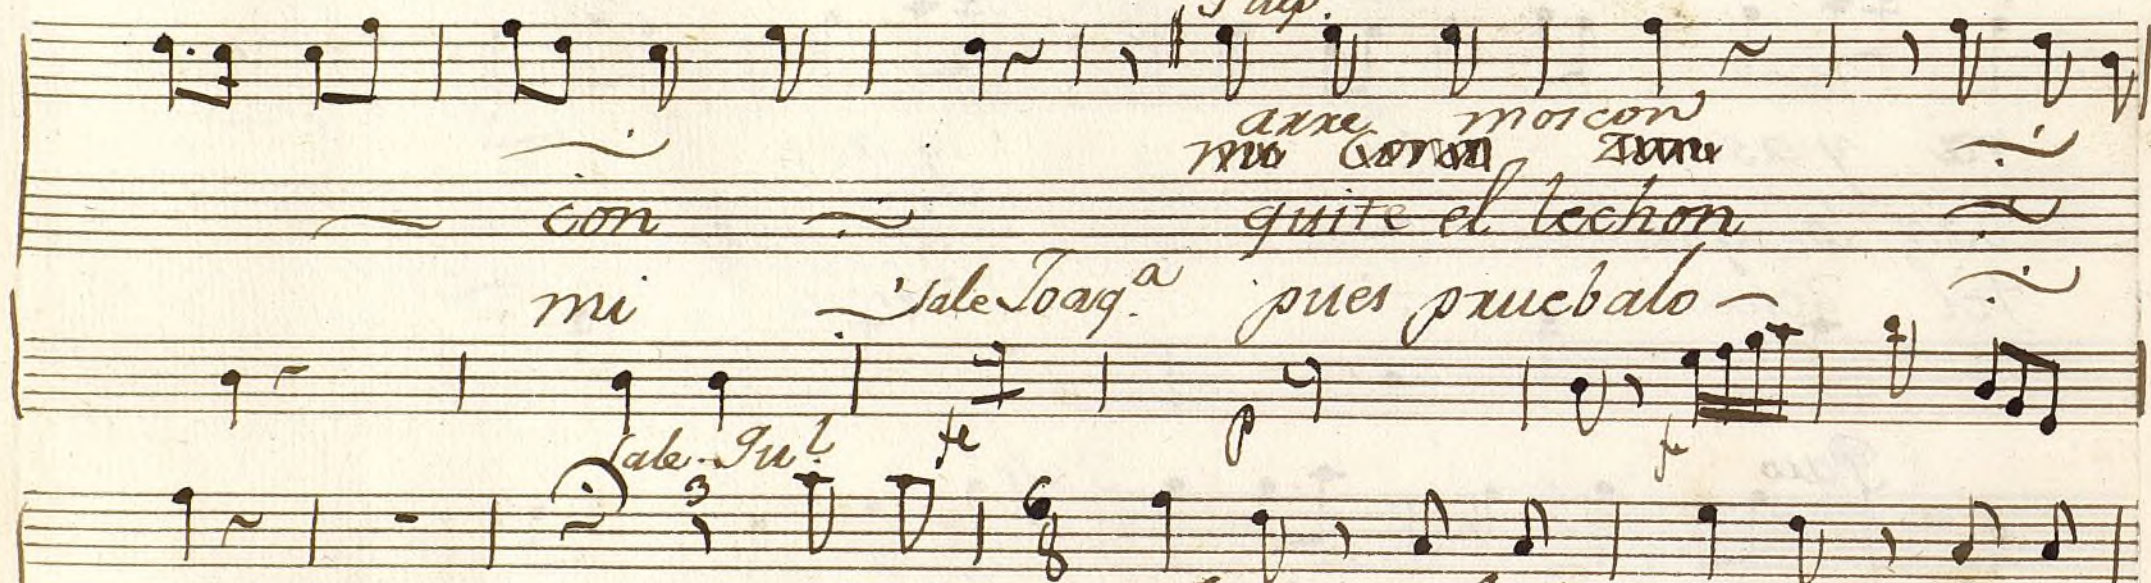 arre moscon
con quite el lechon
mi sale Joaq.ª pues pruebalo
fe p f
sale Gu.l
3 6 8